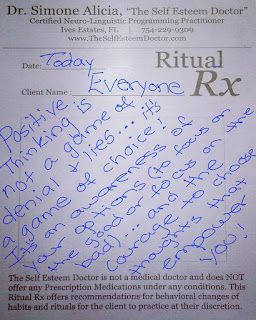 Dr. Simone Alicia, "The Self Esteem Doctor"
Certified Neuro-Linguistic Programming Practitioner
Ives Estates, FL | 754-229-9309
www.TheSelfEsteemDoctor.com
Date: Today
Ritual
Rx
Client Name: Everyone
Positive
Thinking is
not a game of
denial & lies... it's
a game of choice!
It's an awareness of
your (to focus on
the good or focus on the
bad)... and the
courage to choose
thoughts that
empower
YOU!
The Self Esteem Doctor is not a medical doctor and does NOT
offer any Prescription Medications under any conditions. This
Ritual Rx offers recommendations for behavioral changes of
habits and rituals for the client to practice at their discretion.